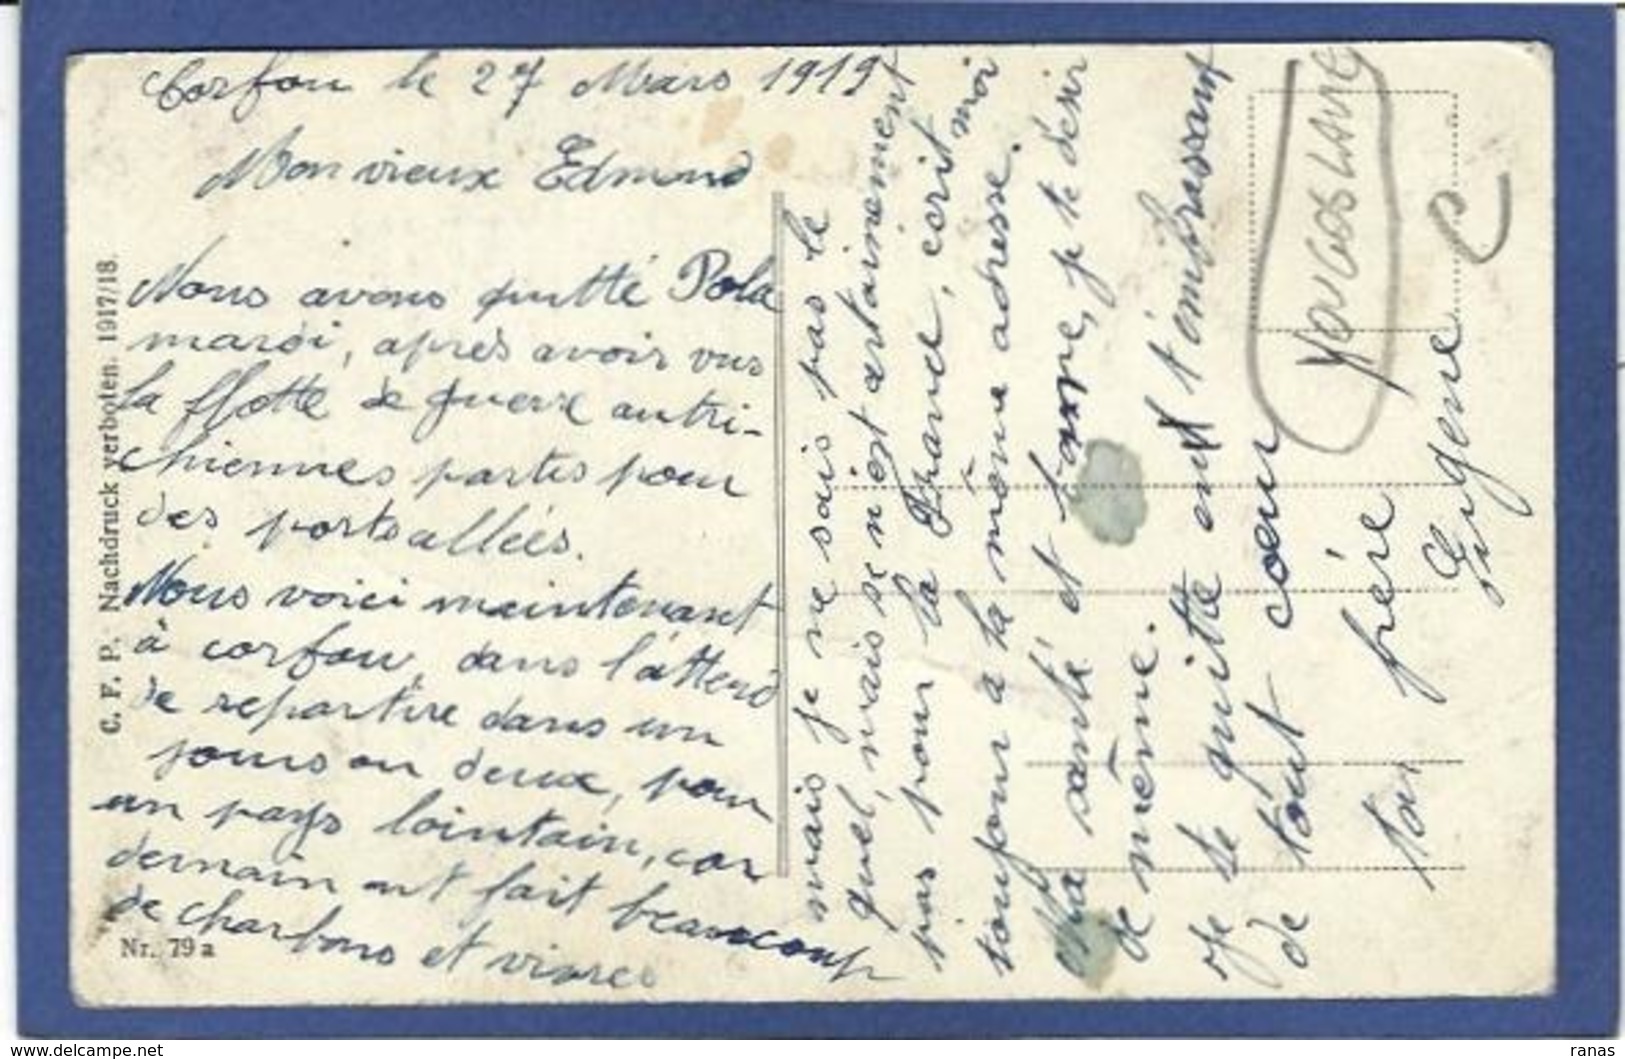 Corfou le 27 Mars 1919
Mon vieux Edmond
Nous avons quitté Pola
mardi, après avoir vus
la flotte de guerre autri-
chiennes partes pour
des ports alliés.
Nous voici maintenant
à corfou, dans l'attend
de repartire dans un
jours ou deux, pour
un pays lointain, car
demain ont fait beaucoup
de charbons et vivres
mais je ne sais pas le
quel, mais se n'est certainnement
pas pour la France, écrit moi
toujour a la même adresse.
Ma santé et bonne, je te desir
de même.
Je te quitte ent t'embrassant
de tout coeur
ton frére
Eugene
YOUGOSLAVIE
C. F. P. Nachdruck verboten. 1917/18.
Nr. 79 a
www.delcampe.net
ranas